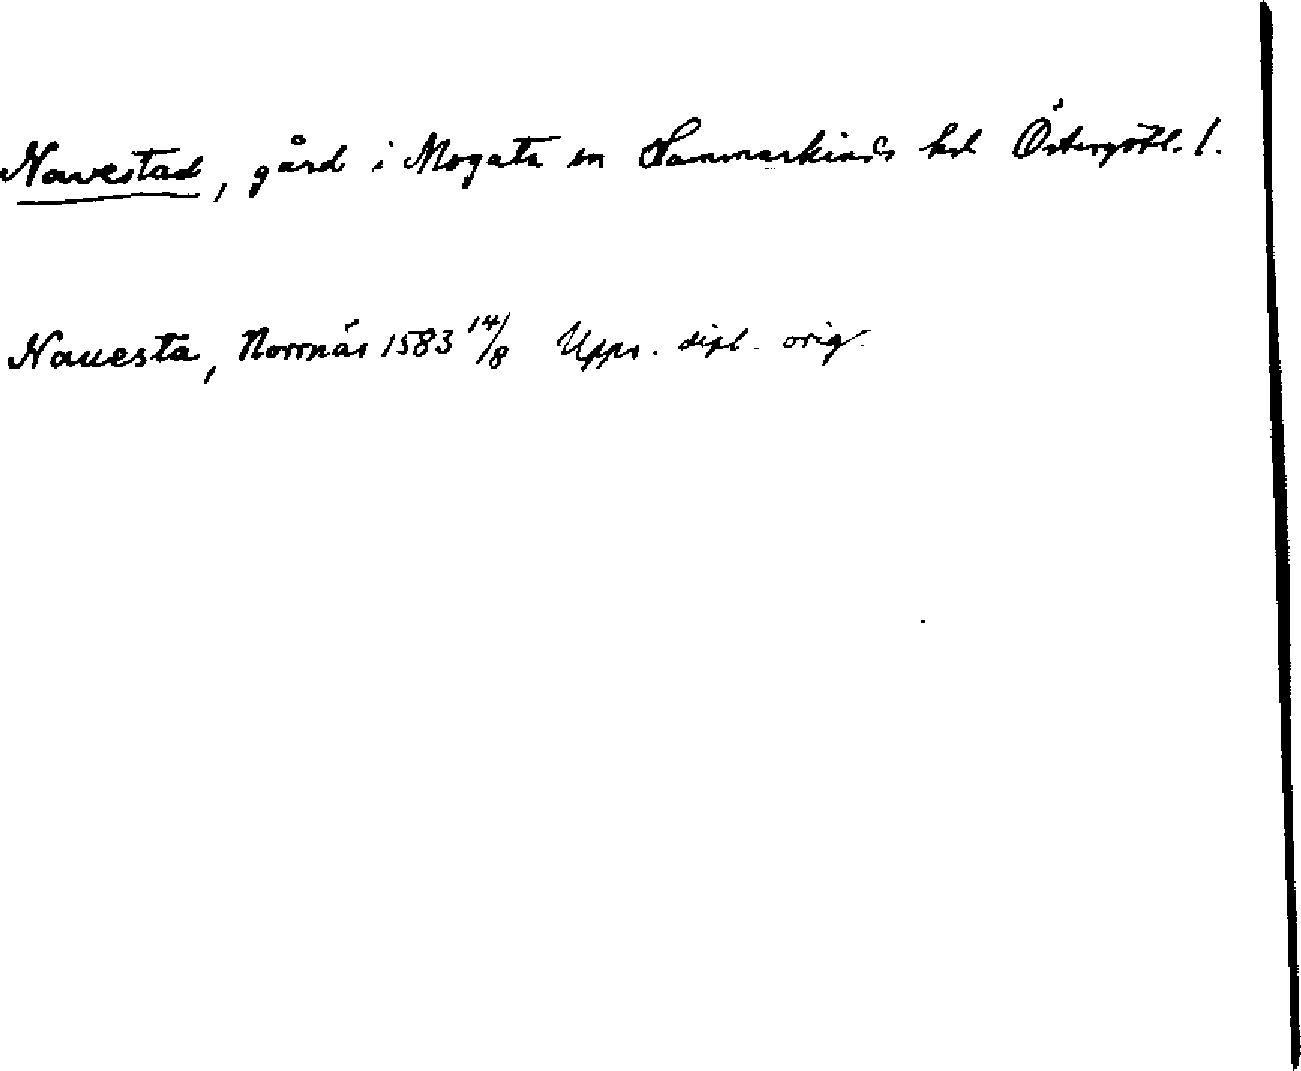 Navestad, gård i Mogata sn Hammarkinds hd Östergötl. l.
Nauesta, Norrnäs 1583 14/8 Upps. dipl. orig.